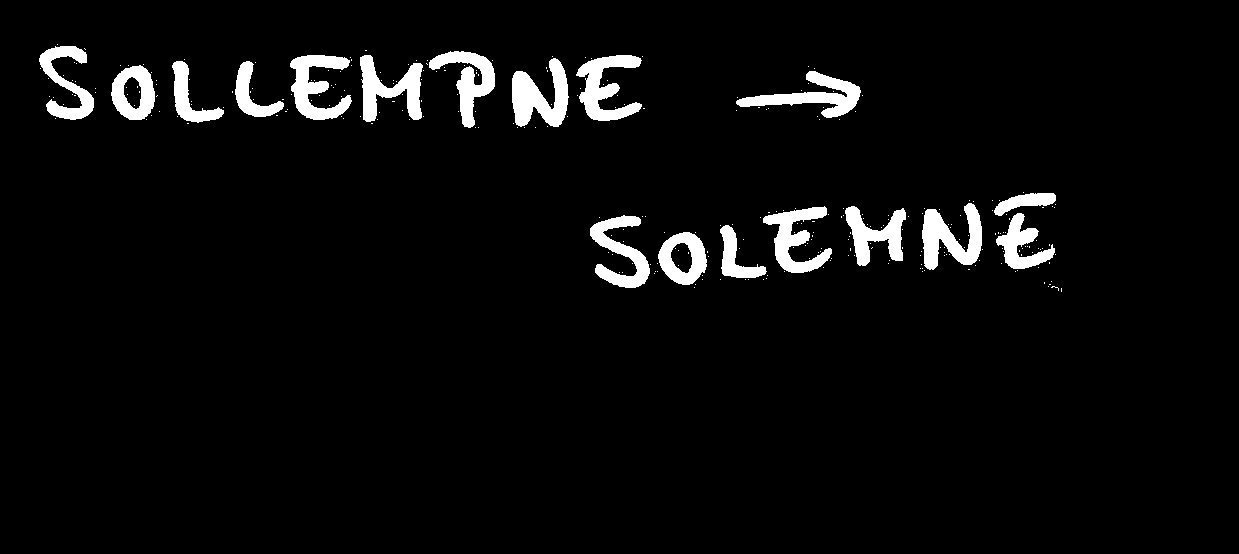 SOLLEMPNE →
SOLEMNE